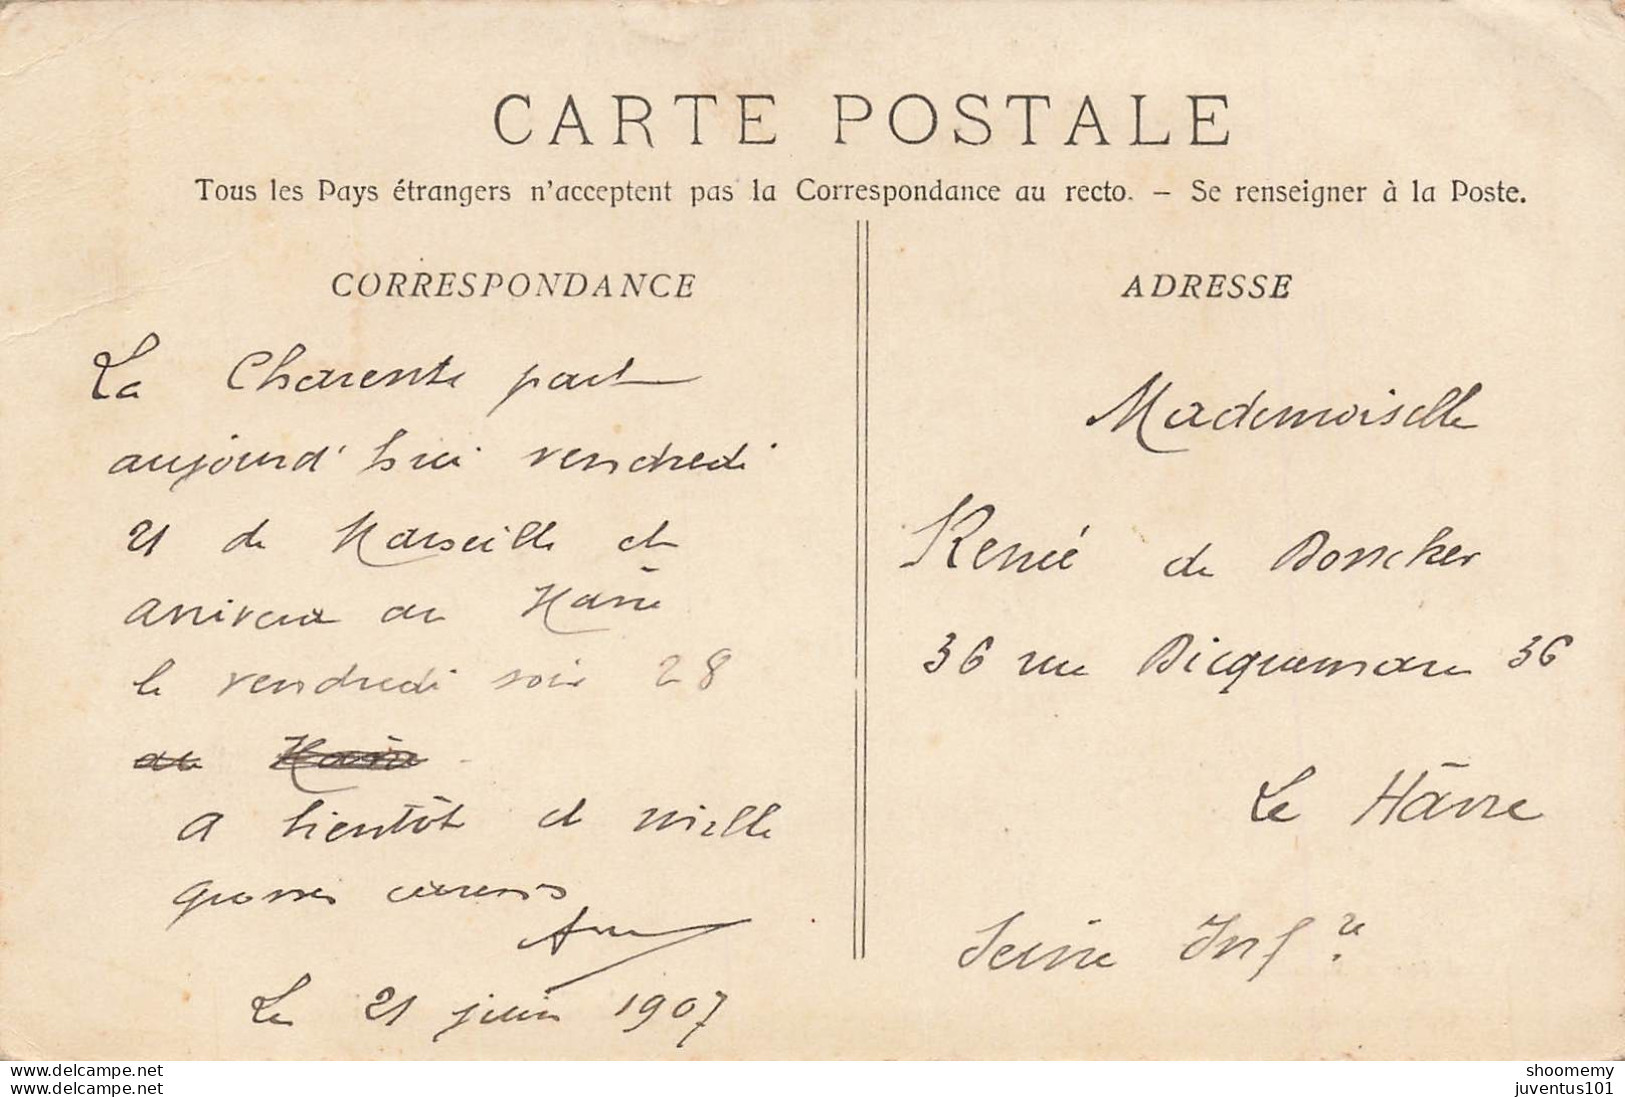 CARTE POSTALE
Tous les Pays étrangers n'acceptent pas la Correspondance au recto. – Se renseigner à la Poste.
CORRESPONDANCE
La Charente part
aujourd'hui vendredi
21 de Marseille et
arrivera au Havre
le vendredi soir 28
au Havre
A bientôt et mille
grosses caresses
Le 21 juin 1907
ADRESSE
Mademoiselle
Renée de
36 rue Bicquemare 36
Le Hâvre
Seine Inf.re
le Livre
le Livre
shoomemy
juventus101